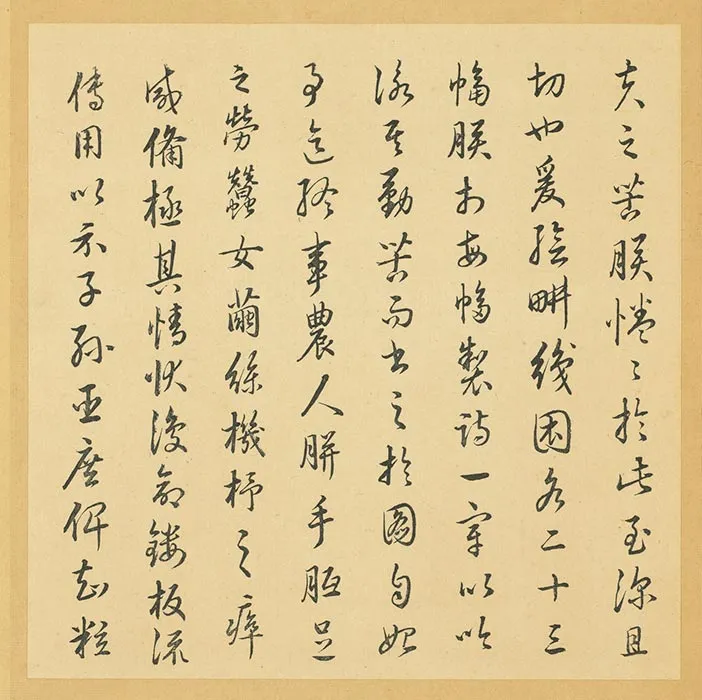 夫之苦朕惓〻於此至深且
切也爰繪畊織圖各二十三
幅朕於每幅製詩一章以吟
詠其勤苦而書之於圖自始
事迄終事農人胼手胝足
之勞蠶女繭絲機杼之瘁
咸備極其情狀復命鏤板流
傳用以示子孫臣庶俾知粒